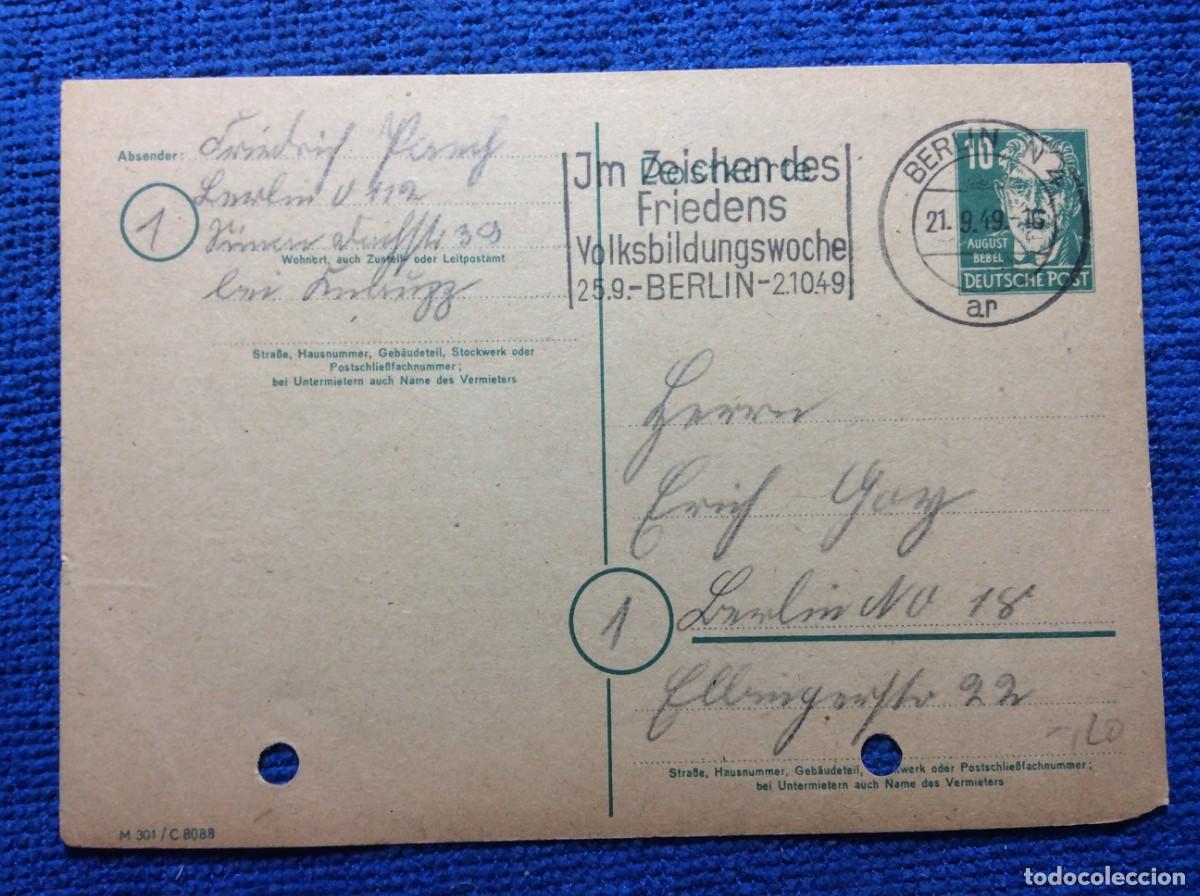 Absender: Friedrich
Berlin O 112
1
39
Wohnort, auch Zustell- oder Leitpostamt
bei
Straße, Hausnummer, Gebäudeteil, Stockwerk oder
Postschließfachnummer;
bei Untermietern auch Name des Vermieters
Postkarte
Jm Zeichen des
Friedens
Volksbildungswoche
25.9.-BERLIN-2.10.49
BERLIN N
21. 9.49-16
ar
10
AUGUST
BEBEL
DEUTSCHE POST
Herrn
Erich
1
Berlin NO 18
Elbingerstr 22
-,20
Straße, Hausnummer, Gebäudeteil, Stockwerk oder Postschließfachnummer;
bei Untermietern auch Name des Vermieters
M 301 / C 8088
todocoleccion